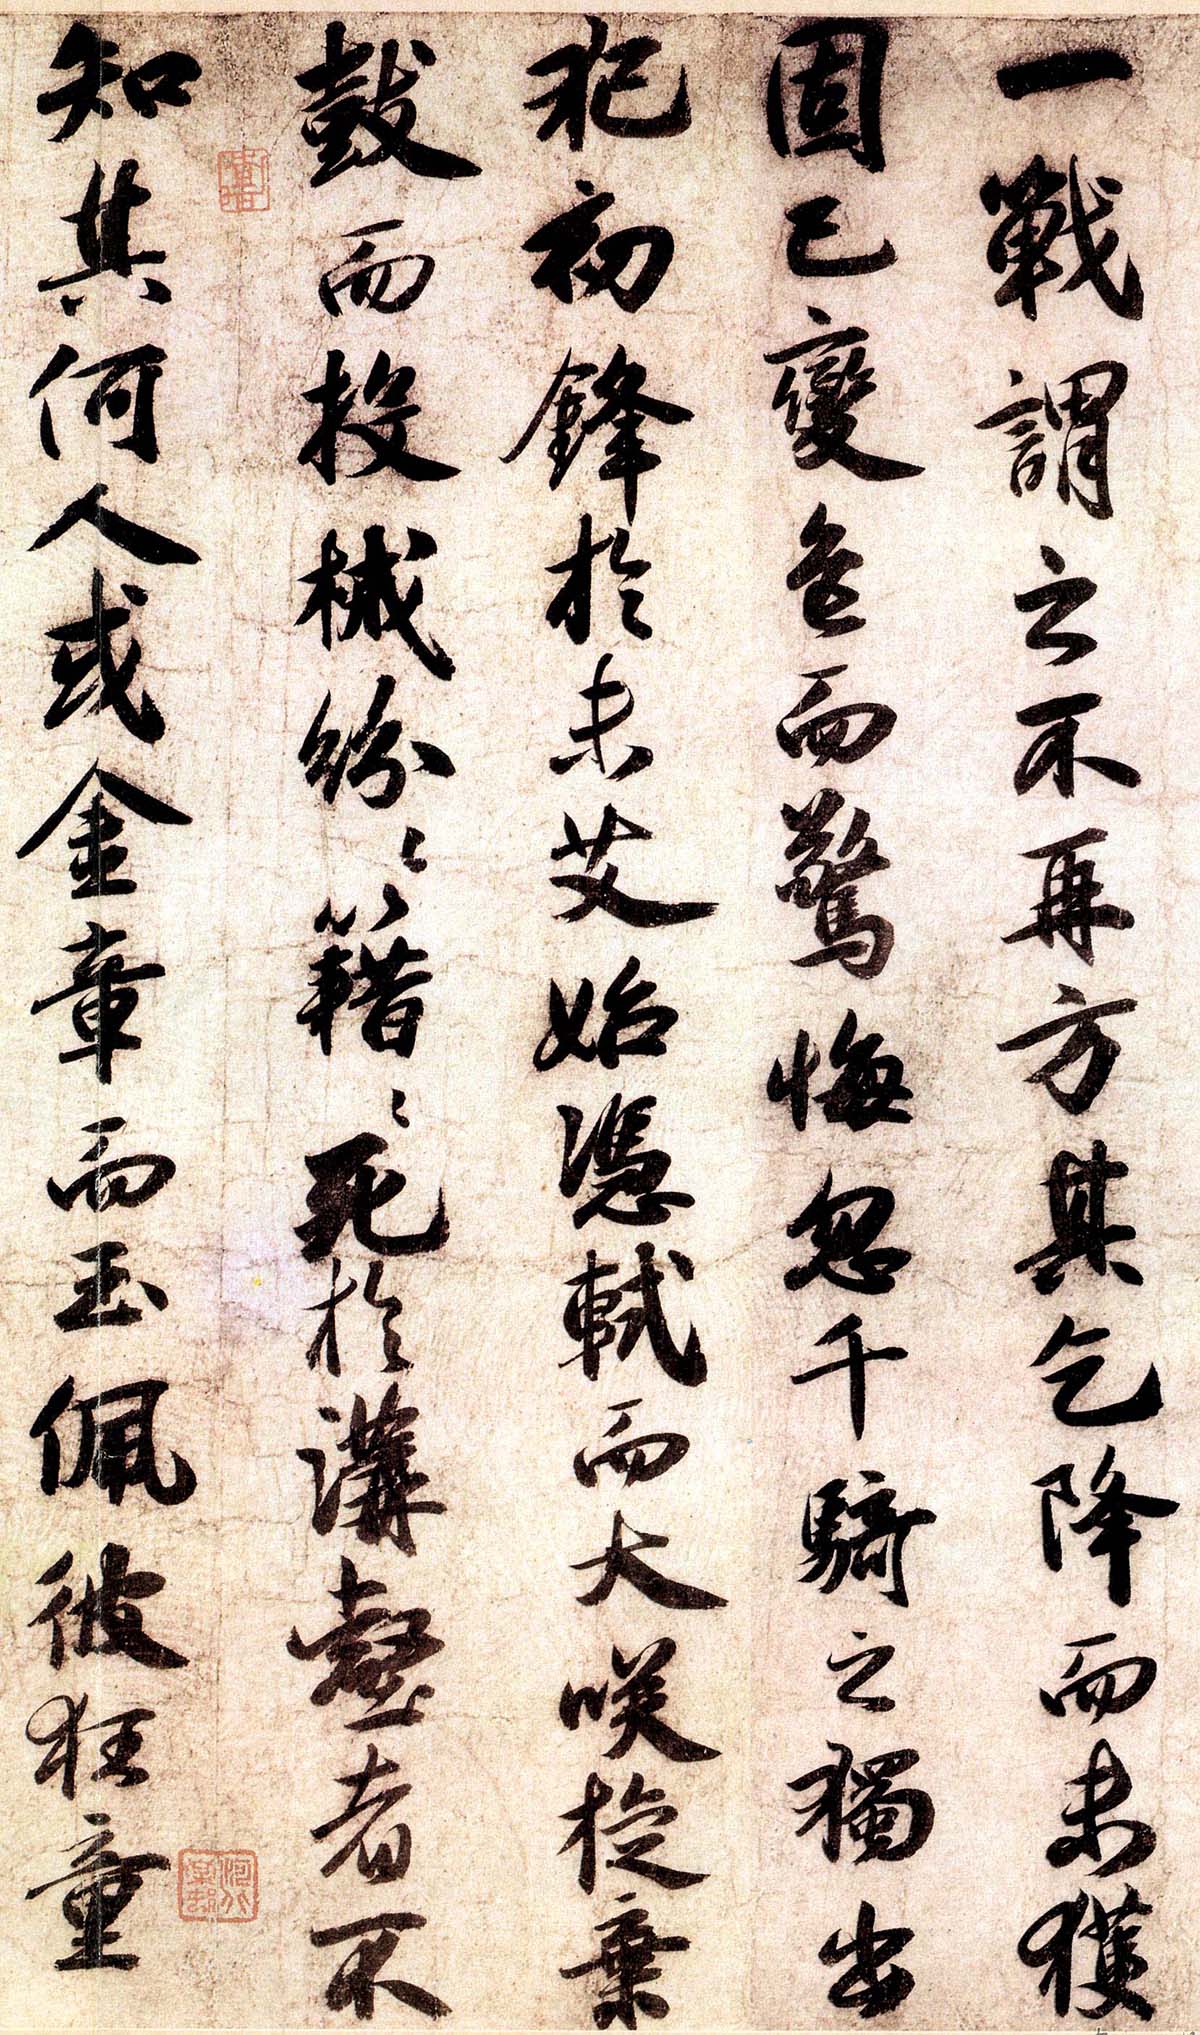 一戰謂之不再方其乞降而未獲
固已變色而驚悔忽千騎之獨出
犯初鋒於未艾始慿軾而大咲旋棄
鼓而投械紛〻籍〻死於溝壑者不
知其何人或金章而玉佩彼狂童